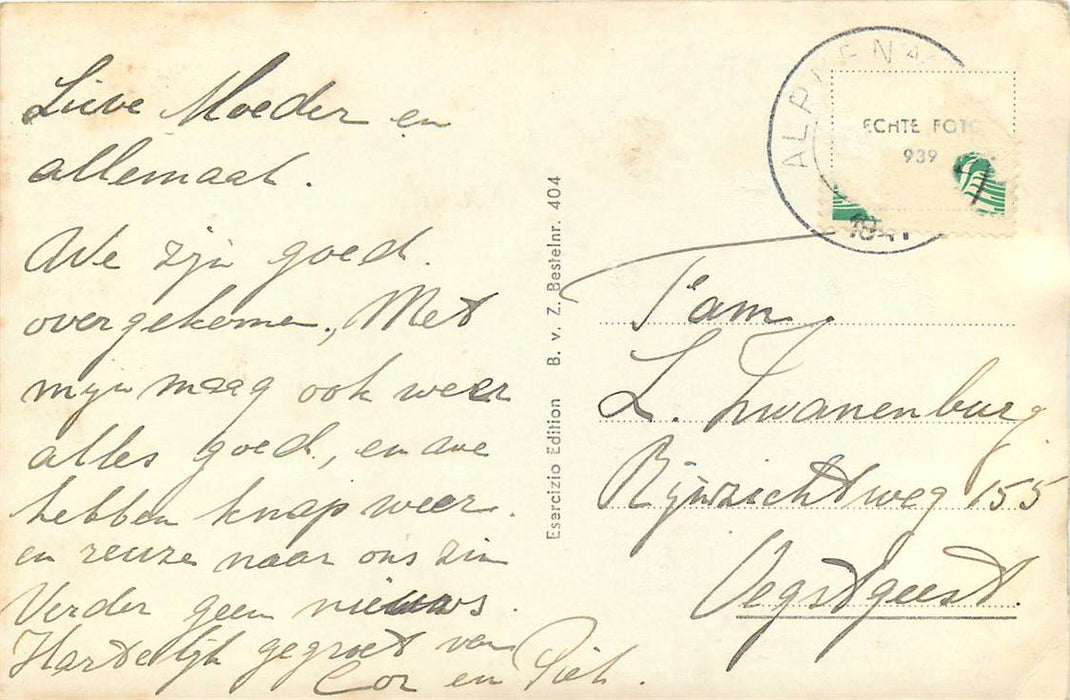 Lieve Moeder en
allemaal.
We zijn goed.
overgekomen, Met
mijn maag ook weer
alles goed, en we
hebben knap weer.
en reuze naar ons zin
Verder geen nieuws.
Hartelijk gegroet van
Cor en Piet.
Esercizio Edition B. v. Z. Bestelnr. 404
ALPHEN A
ECHTE FOTO
939
Fam.
L. Zwanenburg
Rijnzichtweg 155
Oegstgeest.